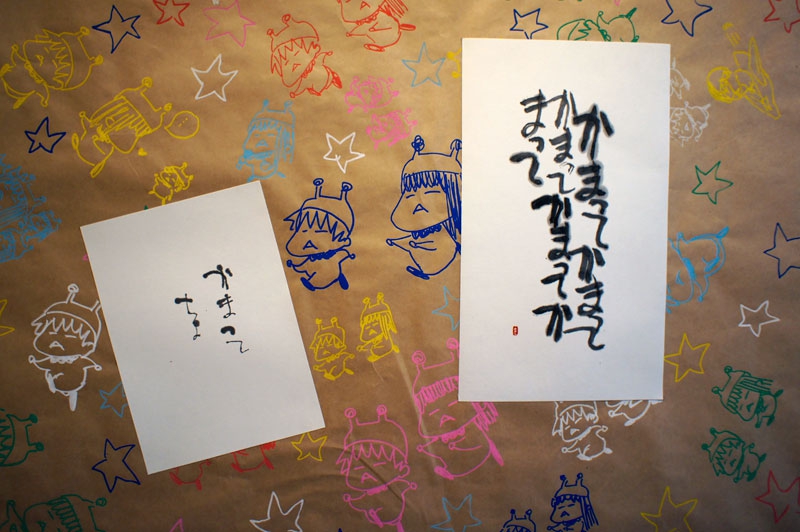 かまってかまって
かまってかまってか
まって
かまって
ちょ